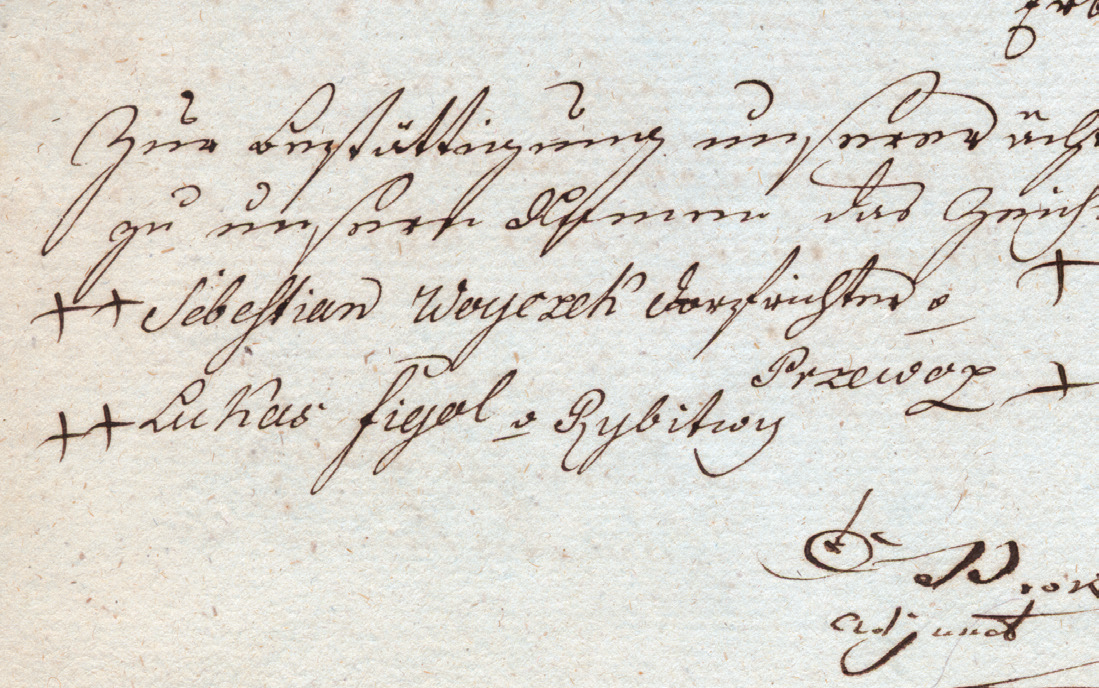 Zur bestättigung unserer ächt
zu unsern Nammen das Zeich
++ Sebestian Woyczek Dorfrichter v
Przewoz +
++ Lukas Figol v Rybitwy
Adjunct